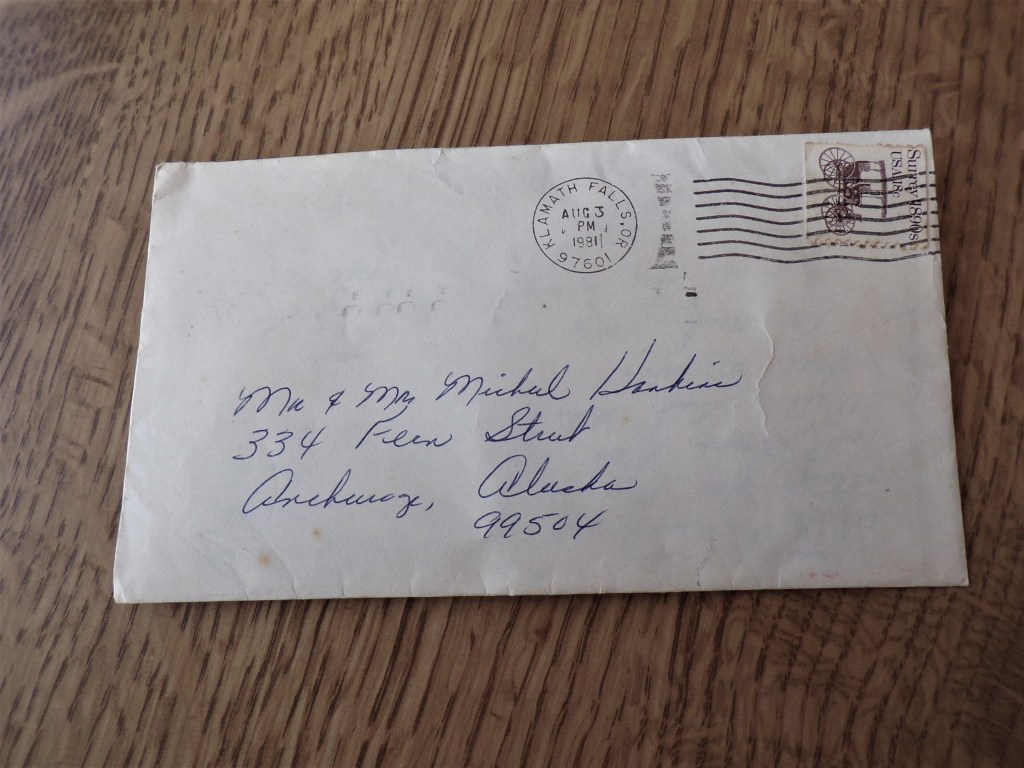 KLAMATH FALLS, OR
AUG 3
PM
1981
97601
Surrey 1890s
USA 18c
Mr & Mrs Michael Hankins
334 Street
Anchorage, Alaska
99504